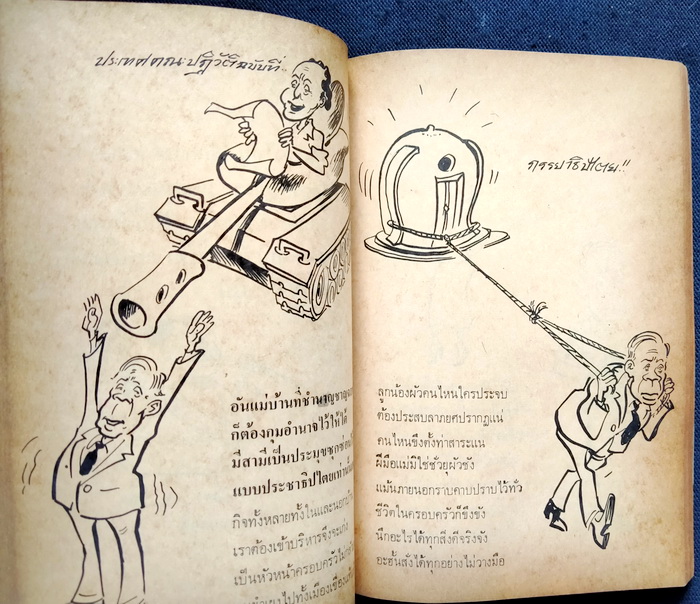 ประกาศคณะปฏิวัติฉบับที่..
อันแม่บ้านที่ชำนาญชาญ
ก็ต้องกุมอำนาจไว้ให้ได้
มีสามีเป็นประมุขซุกซ่อน
แบบประชาธิปไตยเท่านั้น
กิจทั้งหลายทั้งในและนอกบ้าน
เราต้องเข้าบริหารจึงจะเก่ง
เป็นหัวหน้าครอบครัวไม่
ไปทั้งเมือง
ภรรยาธิปไตย..!!
ลูกน้องผัวคนไหนใครประจบ
ต้องประสบลาภยศปรากฏแน่
คนไหนขึงตั้งท่าสาระแน
ฝีมือแม่มิใช่ชั่วยุผัวชัง
แม้นภายนอกราบคาบปราบไว้ทั่ว
ชีวิตในครอบครัวก็ขึงขัง
นึกอะไรได้ทุกสิ่งดีจริงจัง
อะฮั้นสั่งได้ทุกอย่างไม่วางมือ